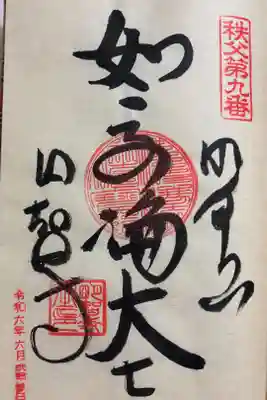 秩父第九番
明星山
如意輪大士
明智寺
令和六年六月